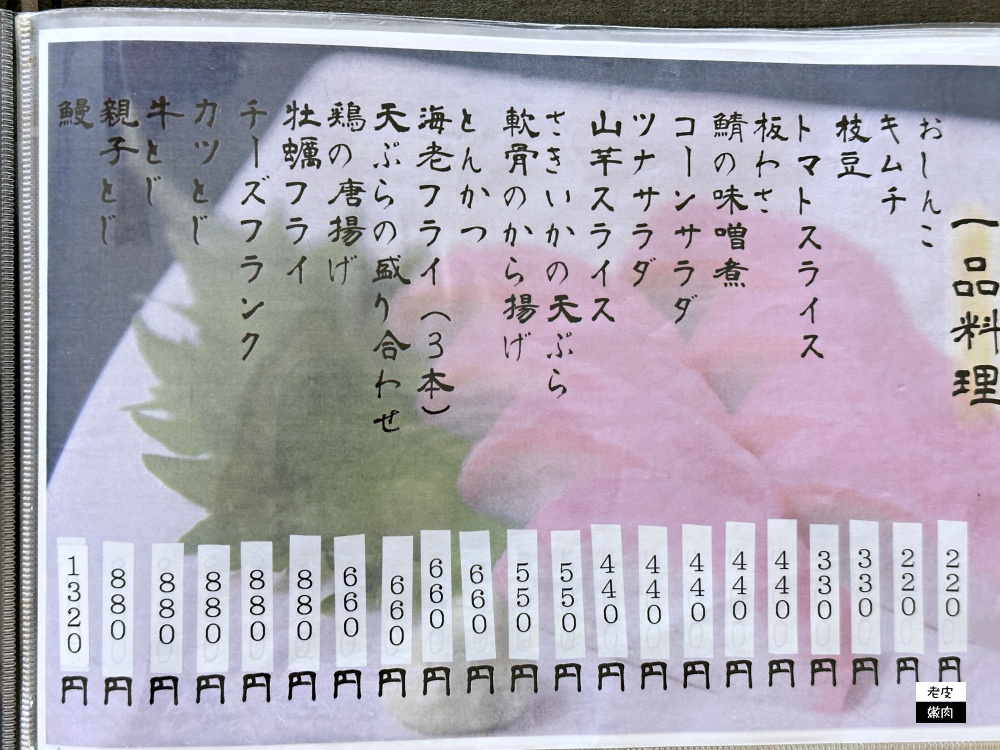 一品料理
おしんこ 220円
キムチ 220円
枝豆 330円
トマトスライス 330円
板わさ 440円
鯖の味噌煮 440円
コーンサラダ 440円
ツナサラダ 440円
山芋スライス 440円
さきいかの天ぷら 550円
軟骨のから揚げ 550円
とんかつ 660円
海老フライ（3本） 660円
天ぷらの盛り合わせ 660円
鶏の唐揚げ 660円
牡蠣フライ 880円
チーズフランク 880円
カツとじ 880円
牛とじ 880円
親子とじ 880円
鰻 1320円
老皮
嫩肉